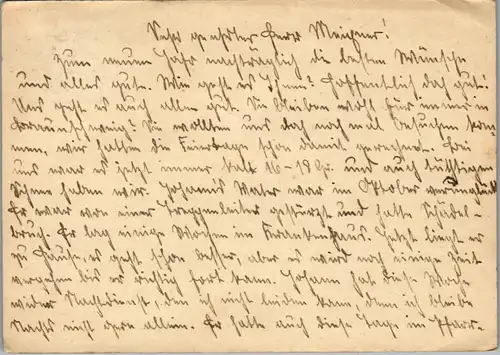 Sehr geehrter Herr Meixner!
Zum neuen Jahr nachträglich die besten Wünsche
und alles gute. Wie geht es Ihnen? Hoffentlich doch gut!
Uns geht es auch allen gut. Sie bleiben wohl für immer in
Braunschweig? Sie wollten uns doch noch mal besuchen kom-
men, wir hatten die Feiertage schon damit gerechnet. Bei
uns war es jetzt immer kalt 16-18 Gr. und auch tüchtigen
Schnee haben wir. Johanns Vater war im Oktober verunglückt
Er war von einer Treppenleiter gestürzt und hatte Schädel-
bruch. Er lag einige Wochen im Krankenhaus. Jetzt liegt er
zu Hause, es geht schon besser, aber es wird noch einige Zeit
vergehen bis er richtig fort kann. Johann hat diese Woche
wieder Nachtdienst, den ich nicht leiden kann, denn ich bleibe
Nachts nicht gern allein. Er hatte auch diese Tage im